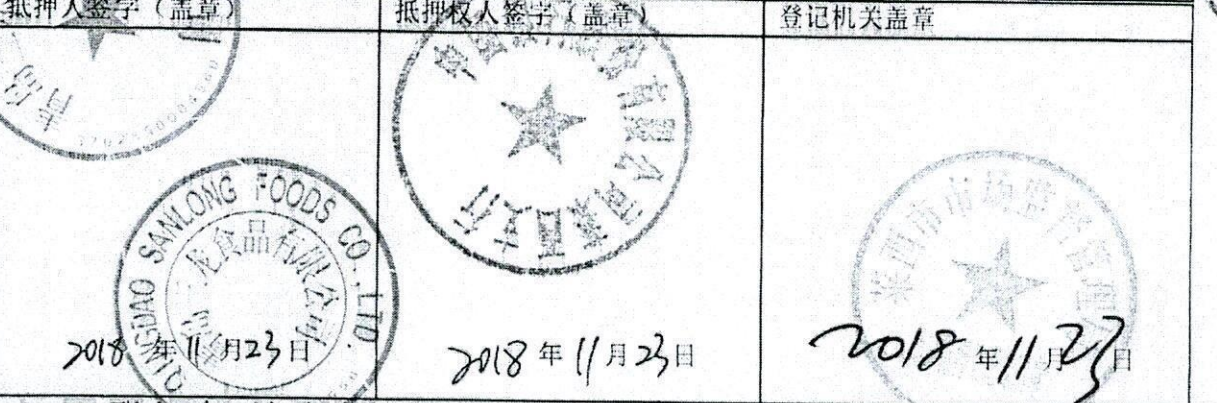 抵押人签字（盖章）
抵押权人签字（盖章）
登记机关盖章
青岛
QINGDAO SANLONG FOODS CO., LTD.
龙食品有限公司
2018年11月23日
份有限公司莱西支行
2018年11月23日
莱西市市场监督管理
2018年11月23日